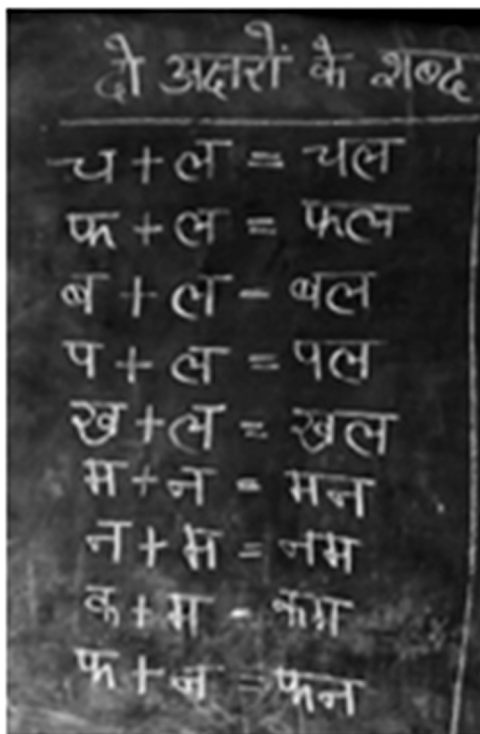 दो अक्षरों के शब्द
च + ल = चल
फ + ल = फल
ब + ल - बल
प + ल = पल
ख + ल = खल
म + न = मन
न + म = नम
क + म - कम
फ + न = फन